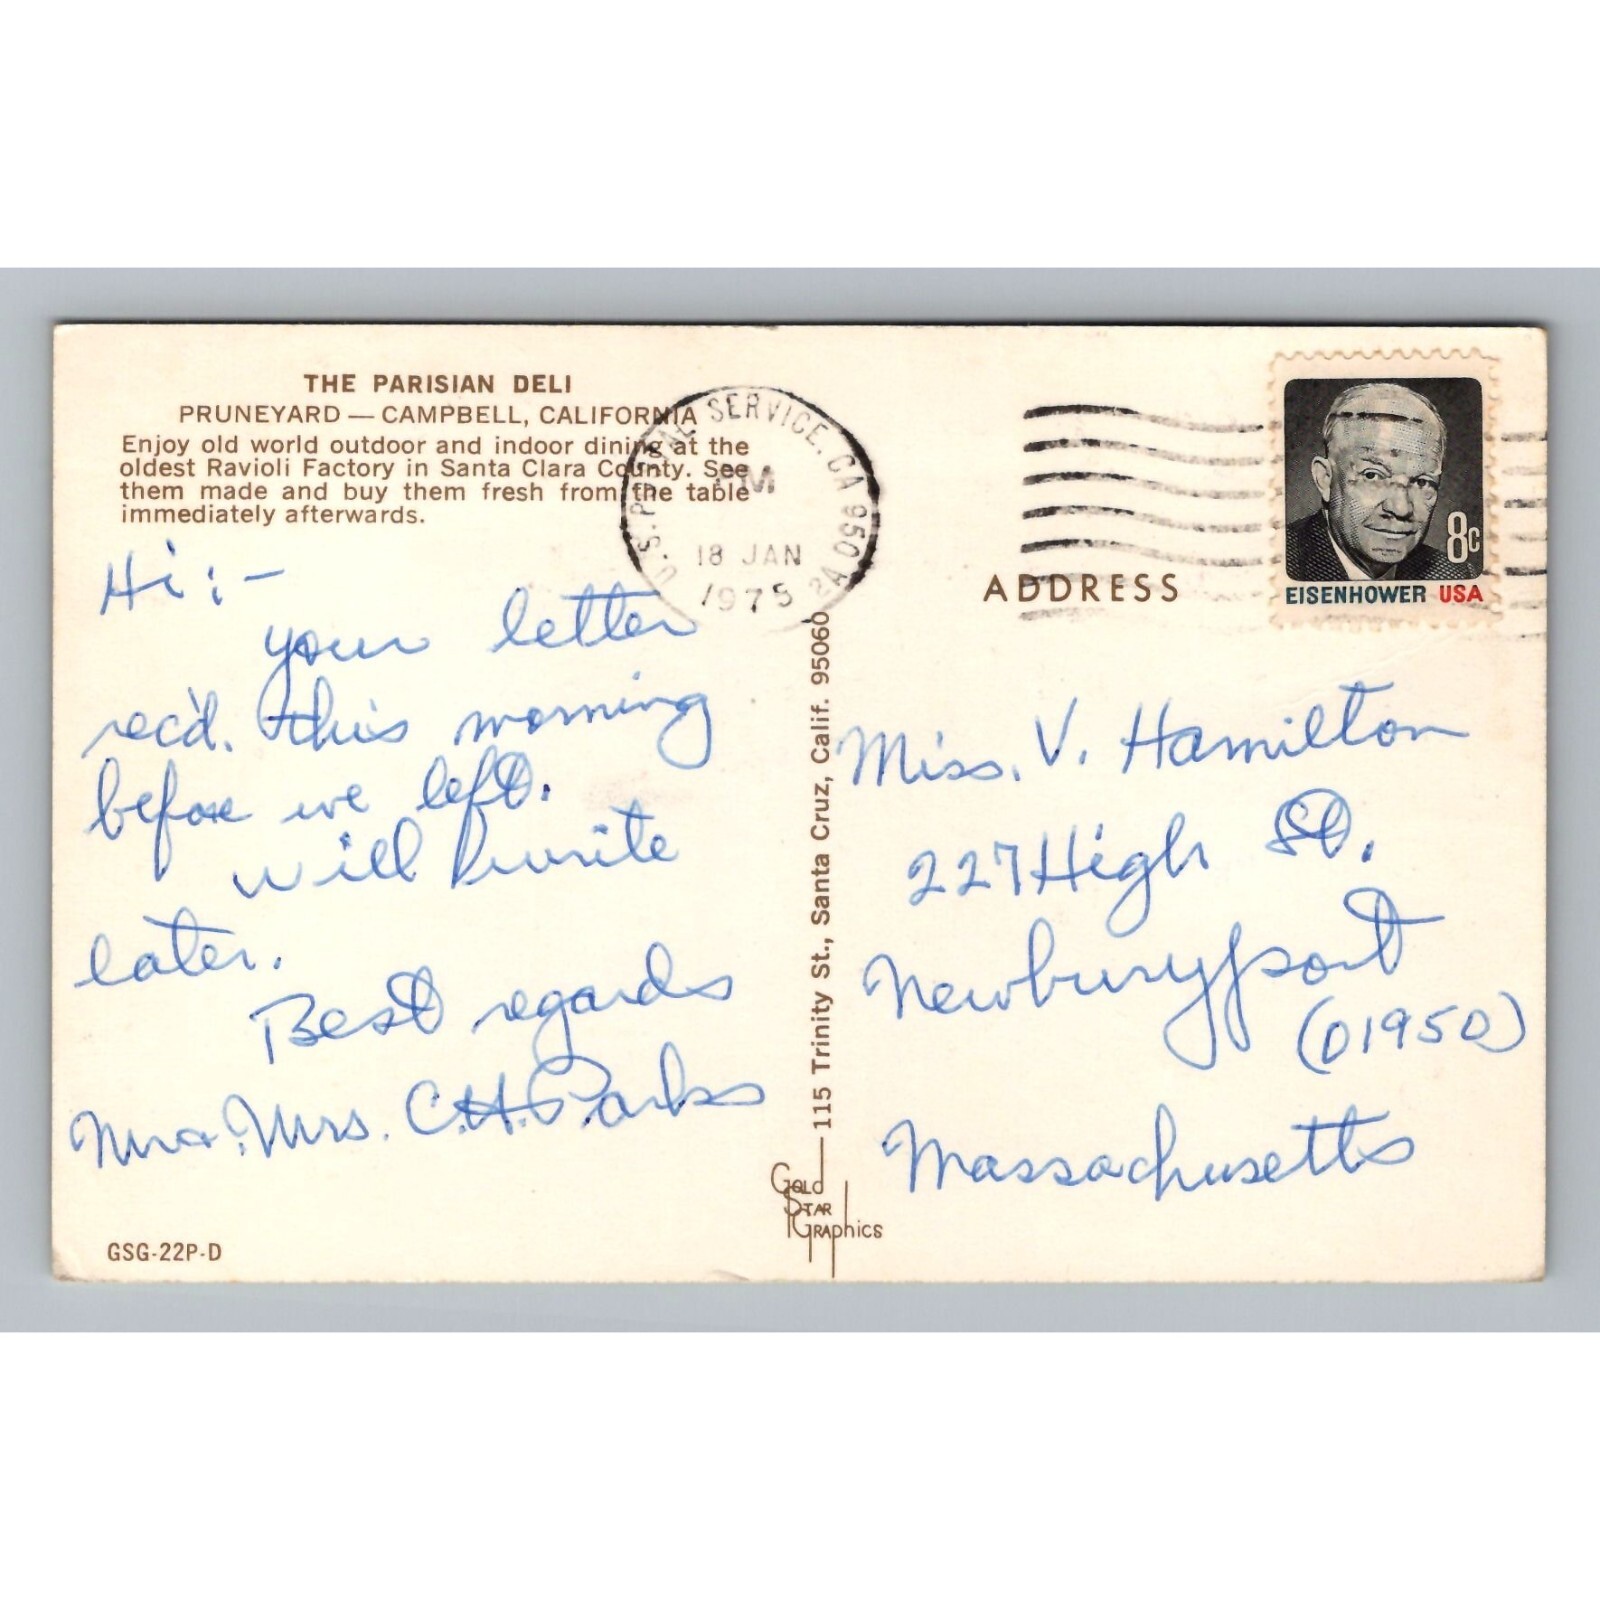 THE PARISIAN DELI
PRUNEYARD — CAMPBELL, CALIFORNIA
Enjoy old world outdoor and indoor dining at the
oldest Ravioli Factory in Santa Clara County. See
them made and buy them fresh from the table
immediately afterwards.
Hi:-
your letter
rec'd. this morning
before we left.
will write
later.
Best regards
Mr & Mrs. C.H. Parks
GSG-22P-D
U.S. POSTAL SERVICE, CA 950 2A
PM
18 JAN
1975
115 Trinity St., Santa Cruz, Calif. 95060
GOLD
STAR
GRAPHICS
ADDRESS
8c
EISENHOWER USA
Miss. V. Hamilton
227 High St.
Newburyport
(01950)
Massachusetts